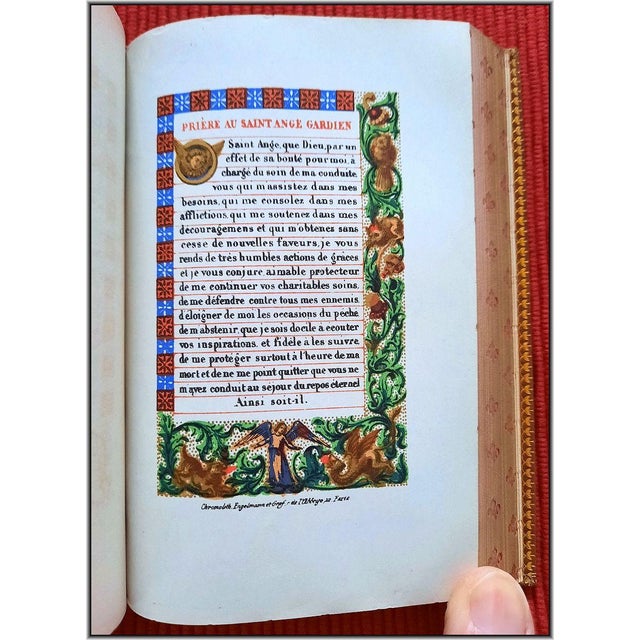 PRIÈRE AU SAINT ANGE GARDIEN
O Saint Ange, que Dieu, par un
effet de sa bonté pour moi, à
chargé du soin de ma conduite
vous qui m'assistez dans mes
besoins, qui me consolez dans mes
afflictions, qui me soutenez dans mes
découragemens et qui m'obtenez sans
cesse de nouvelles faveurs, je vous
rends de très humbles actions de grâces
et je vous conjure, aimable protecteur
de me continuer vos charitables soins,
de me défendre contre tous mes ennemis,
d'éloigner de moi les occasions du péché
de m'abstenir, que je sois docile à écouter
vos inspirations, et fidèle à les suivre
de me protéger surtout à l'heure de ma
mort et de ne me point quitter que vous ne
m'ayez conduit au séjour du repos éternel
Ainsi soit-il.
Chromolith. Engelmann et Graf. r. de l'Abbaye, 12 Paris